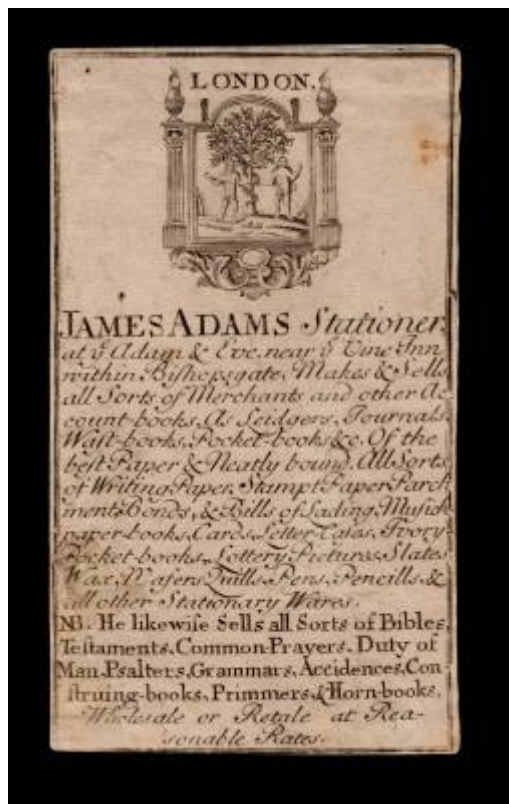 LONDON.
JAMES ADAMS Stationer,
at yͤ Adam & Eve, near yͤ Vine Inn
within Bishopsgate, Makes & Sells
all Sorts of Merchants and other Ac-
count-books, As Leidgers, Journals,
Waſt-books, Pocket-books &c. Of the
beſt Paper & Neatly bound. All Sorts
of Writing Paper, Stampt Paper, Parch
ment, Bonds, & Bills of Lading, Musick
paper-books, Cards, Letter-Cases, Ivory-
Pocket-books, Lottery Pictures, Slates
Wax, Wafers, Quills, Pens, Pencills, &
all other Stationary Wares.
NB. He likewiſe Sells all Sorts of Bibles,
Teſtaments, Common-Prayers, Duty of
Man, Psalters, Grammars, Accidences, Con-
ſtruing-books, Primmers, & Horn-books,
Wholesale or Retale at Rea-
sonable Rates.